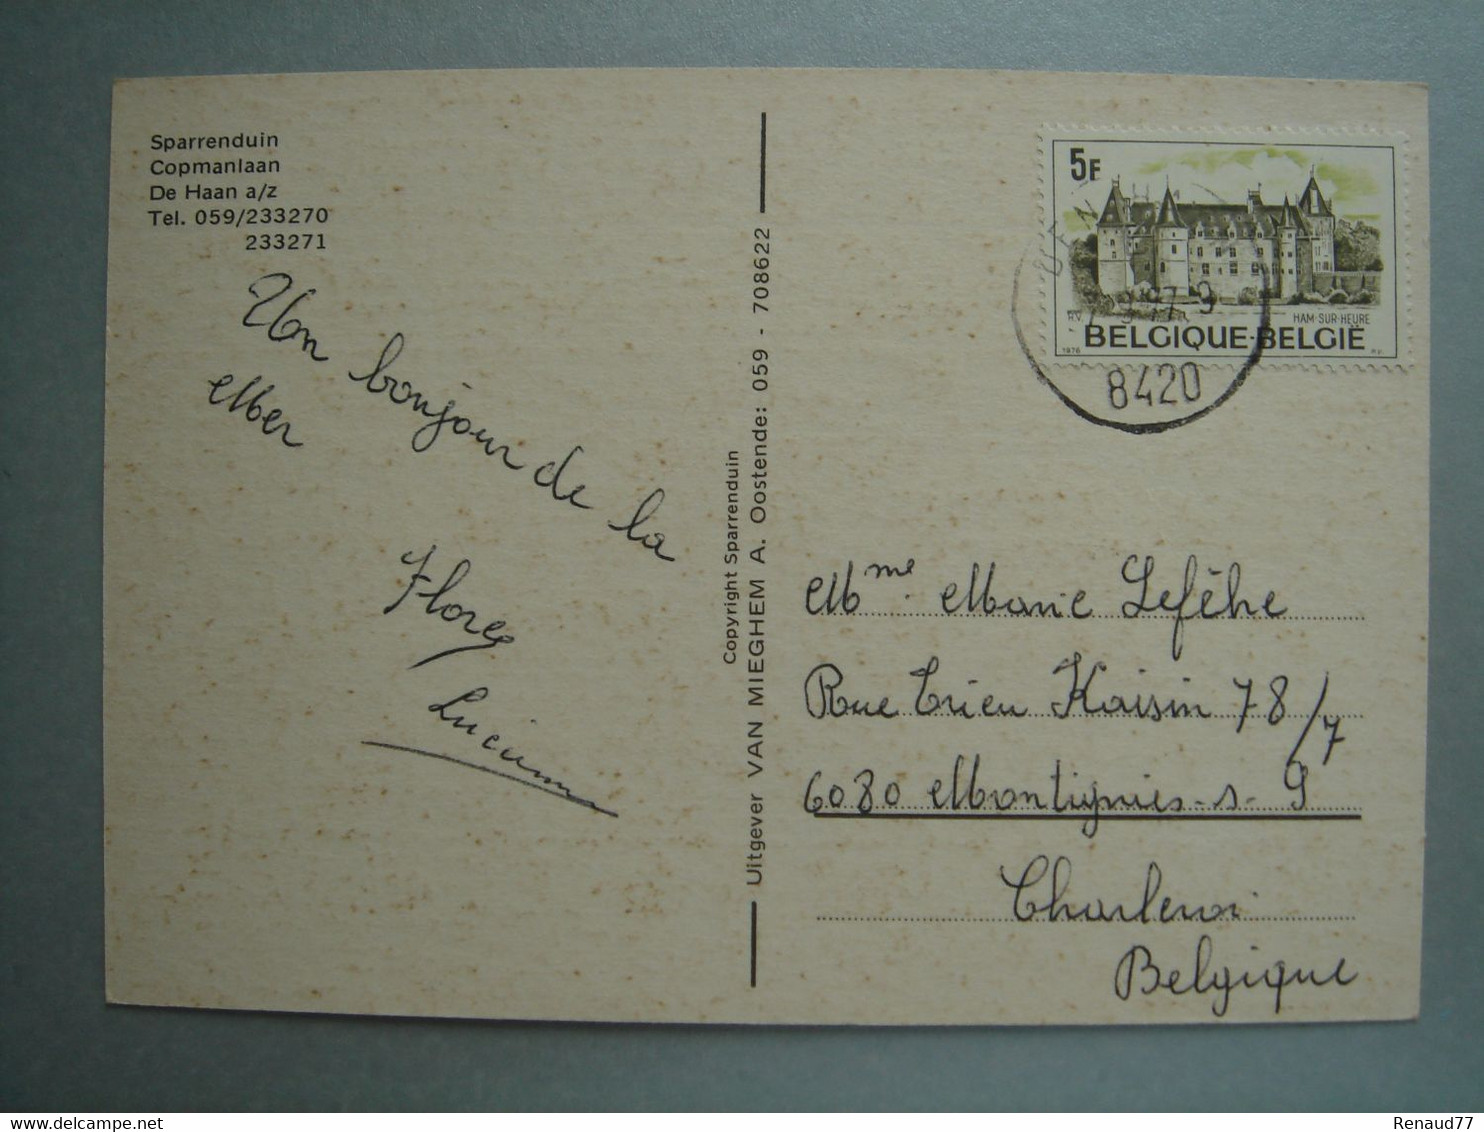 Sparrenduin
Copmanlaan
De Haan a/z
Tel. 059/233270
233271
Un bonjour de la
Mer
Lucienne
Copyright Sparrenduin
Uitgever VAN MIEGHEM A. Oostende: 059 - 708622
5F
H.V.
HAM-SUR-HEURE
BELGIQUE-BELGIË
1976
8420
Mme. Marie Lefêhe
Rue Trieu Kaisin 78/7
6080 Montignies-s-S
Charleroi
Belgique
Renaud77